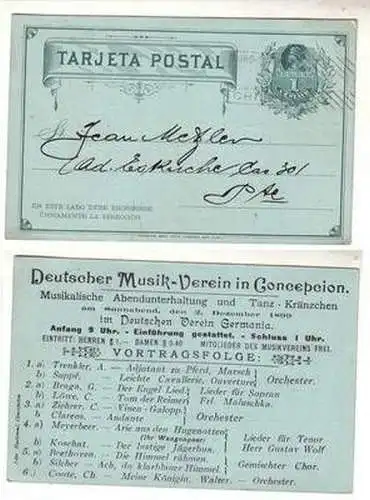 TARJETA POSTAL
Jean Metzler
Ad. Eskuche Cas 301
Pte
EN ESTE LADO DEBE ESCRIBIRSE
ÚNICAMENTE LA DIRECCIÓN
Deutscher Musik-Verein in Concepcion.
Musikalische Abendunterhaltung und Tanz-Kränzchen
am Sonnabend, den 2. Dezember 1899
im Deutschen Verein Germania.
Anfang 9 Uhr. - Einführung gestattet. - Schluss 1 Uhr.
EINTRITT: HERREN $ 1.— DAMEN $ 0.40 MITGLIEDER DES MUSIKVEREINS FREI.
VORTRAGSFOLGE:
1. a) Trenkler, A. — Adjutant zu Pferd, Marsch
b) Suppé. — Leichte Cavallerie, Ouverture Orchester.
2. a) Braga, G. — Der Engel Lied. Lieder für Sopran
b) Löwe, C. — Tom der Reimer Frl. Maluschka.
3. a) Ziehrer, C. — Vinea-Galopp.
b) Clarens. — Andante Orchester
4. a) Meyerbeer. — Arie aus den Hugenotten Lieder für Tenor
(Ihr Wangenpaar)
b) Koschat. — Der lustige Jägerbua. Herr Gustav Wolf
5. a) Beethoven. — Die Himmel rühmen.
b) Silcher — Ach, du klarblauer Himmel Gemischter Chor.
6.) Coote, Ch — Meine Königin, Walzer. — Orchester.